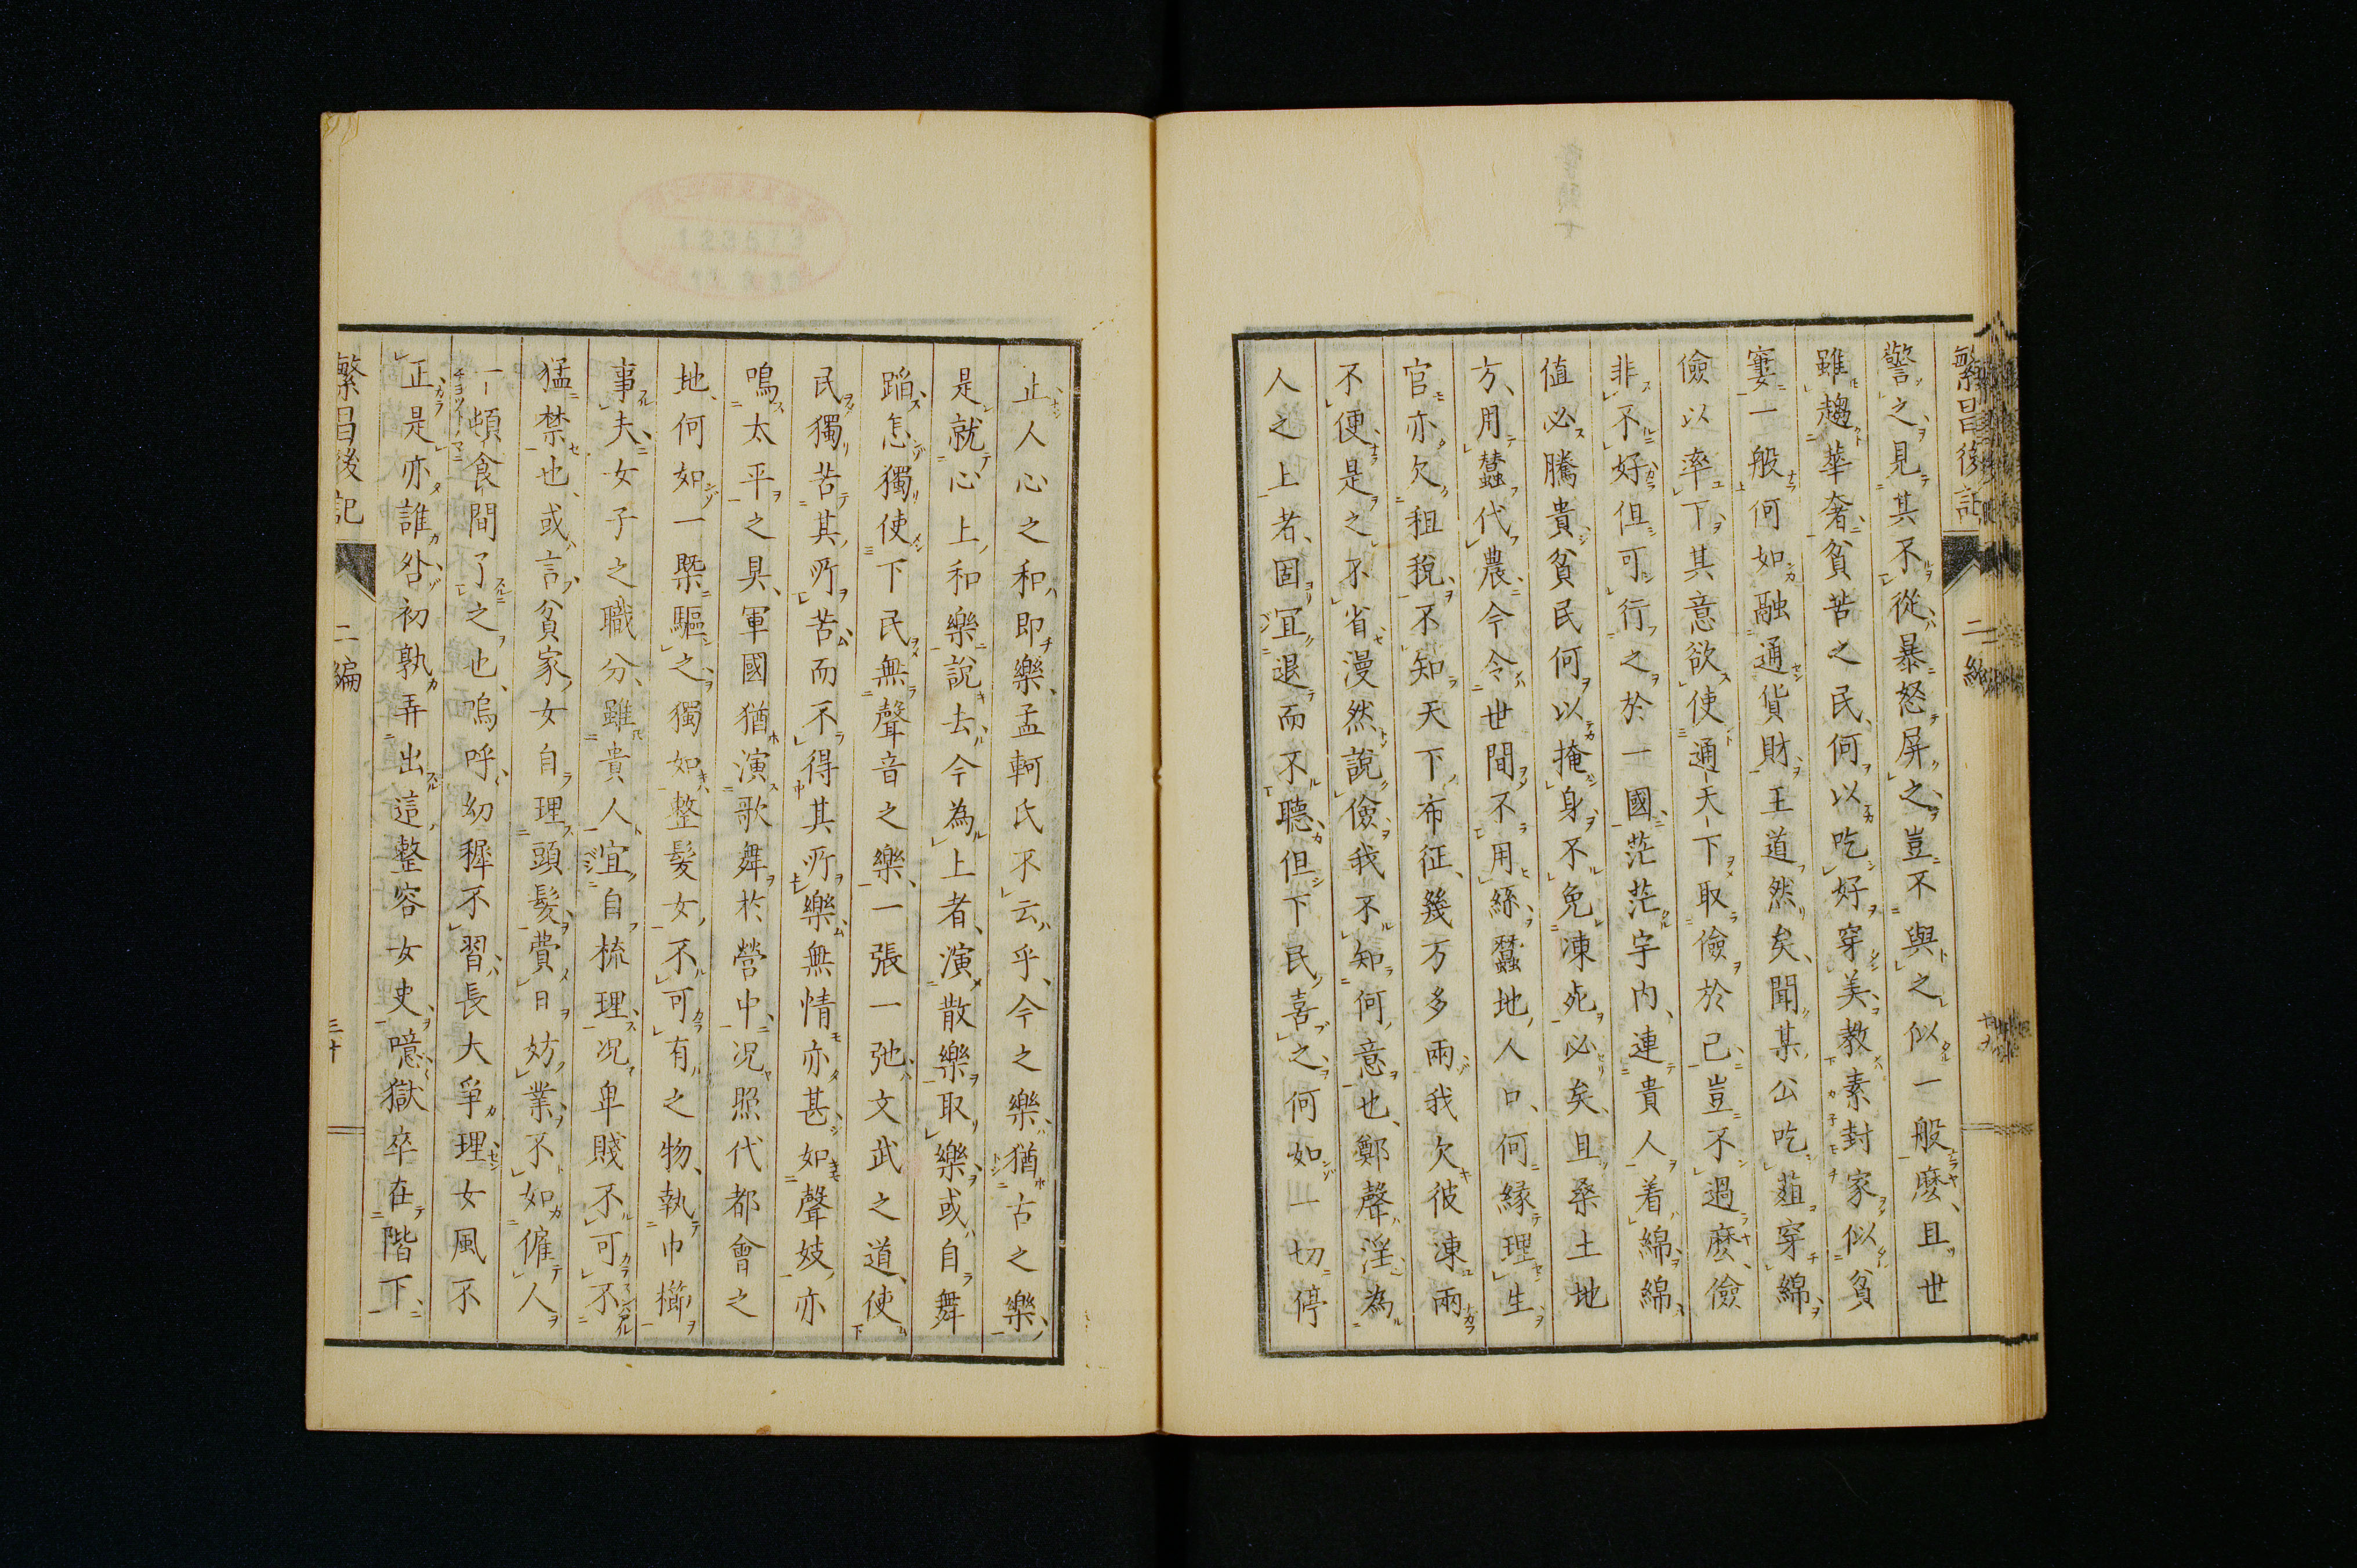 警之見其不從暴怒屏之豈不與之似一般麼、且世
雖趨華奢貧苦之民、何以吃好穿美教素封家似貧
窶一般何如融通貨財、王道然矣、聞某公吃葅穿綿、
儉以率下其意欲使通天下取儉於己、豈不過麼、儉
非不好但可行之於一國、茫茫宇内、連貴人着綿綿
值必騰貴貧民何以掩身不免凍死必矣、且桒土地
方、用蠶代農、今令世間不用絲、蠶地人口、何緣理生
官亦欠租稅、不知天下布征、幾万多兩我欠彼凍兩
不便是之不省漫然說儉我不知何意也、鄭聲淫、為
人之上者、固宜退而不聽、但下民喜之何如一切停
止、人心之和即樂、孟軻氏不云乎、今之樂猶古之樂、
是就心上和樂說去、今為上者、演散樂取樂、或自舞
蹈、怎獨使下民無聲音之樂、一張一弛、文武之道、使
民獨苦其所苦而不得其所樂無情亦甚、如聲妓亦
鳴太平之具、軍國猶演歌舞於營中、況照代都會之
地、何如一槩驅之、獨如整髮女、不可有之物、執巾櫛
事夫、女子之職分、雖貴人宜自梳理、况卑賤不可不
猛禁也、或言貧家女自理頭髮、費日妨業、不如僱人
一頓食間了之也、嗚呼、幼穉不習、長大爭理、女風不
正、是亦誰咎、初孰弄出這整容女吏、噫獄卒在階下、
繁昌後記
二編
三十